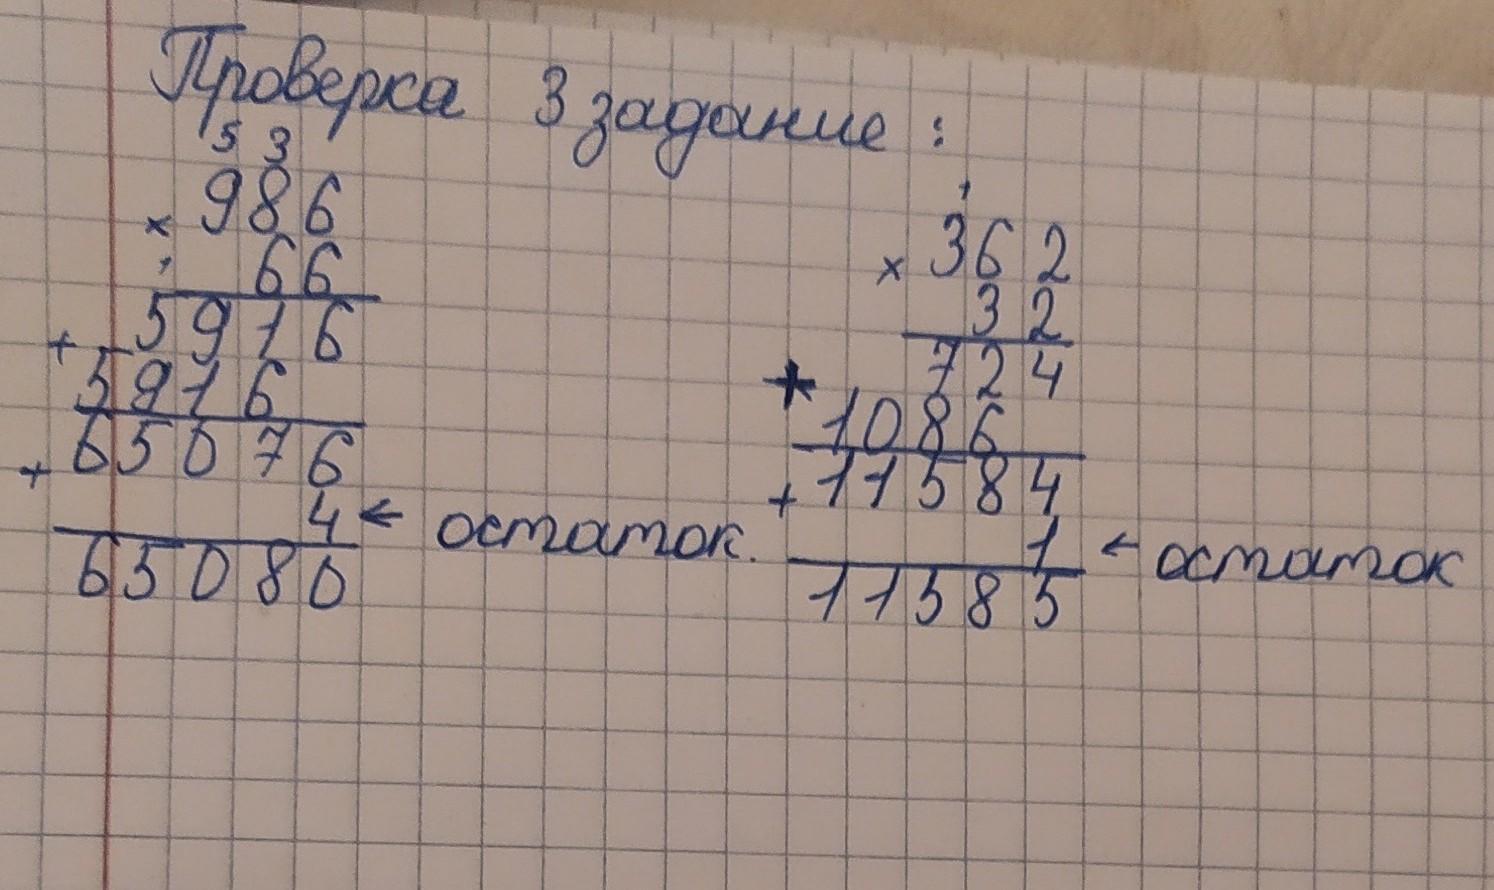 Проверка 3 задание:
5 3
986
×
66
5916
+
5916
65076
+
4 ← остаток.
65080
1
362
×
32
724
+
1086
11584
+
1 ← остаток
11585